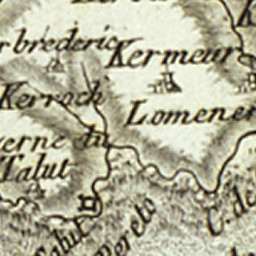 rbrederic
Kermeur
Kerroch
Lomener
erne du
Talut
Talut
Pereto
C. de